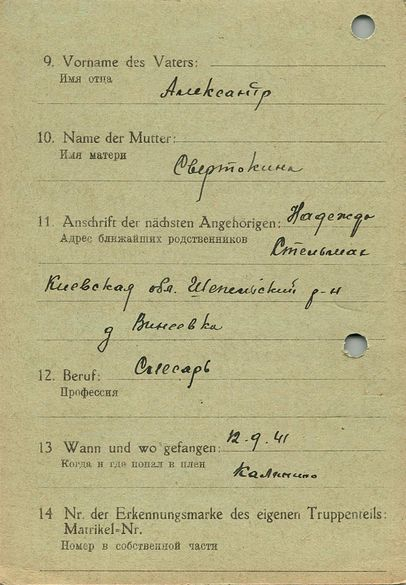 9. Vorname des Vaters:
Имя отца
Александр
10. Name der Mutter:
Имя матери
Свертокина
11. Anschrift der nächsten Angehörigen: Надежда
Адрес ближайших родственников Стельмах
Киевская обл. р-н
д Винсевка
12. Beruf: Слесарь
Профессия
13 Wann und wo gefangen: 12.9.41
Когда и где попал в плен
Калинино
14 Nr. der Erkennungsmarke des eigenen Truppenteils:
Matrikel-Nr.
Номер в собственной части